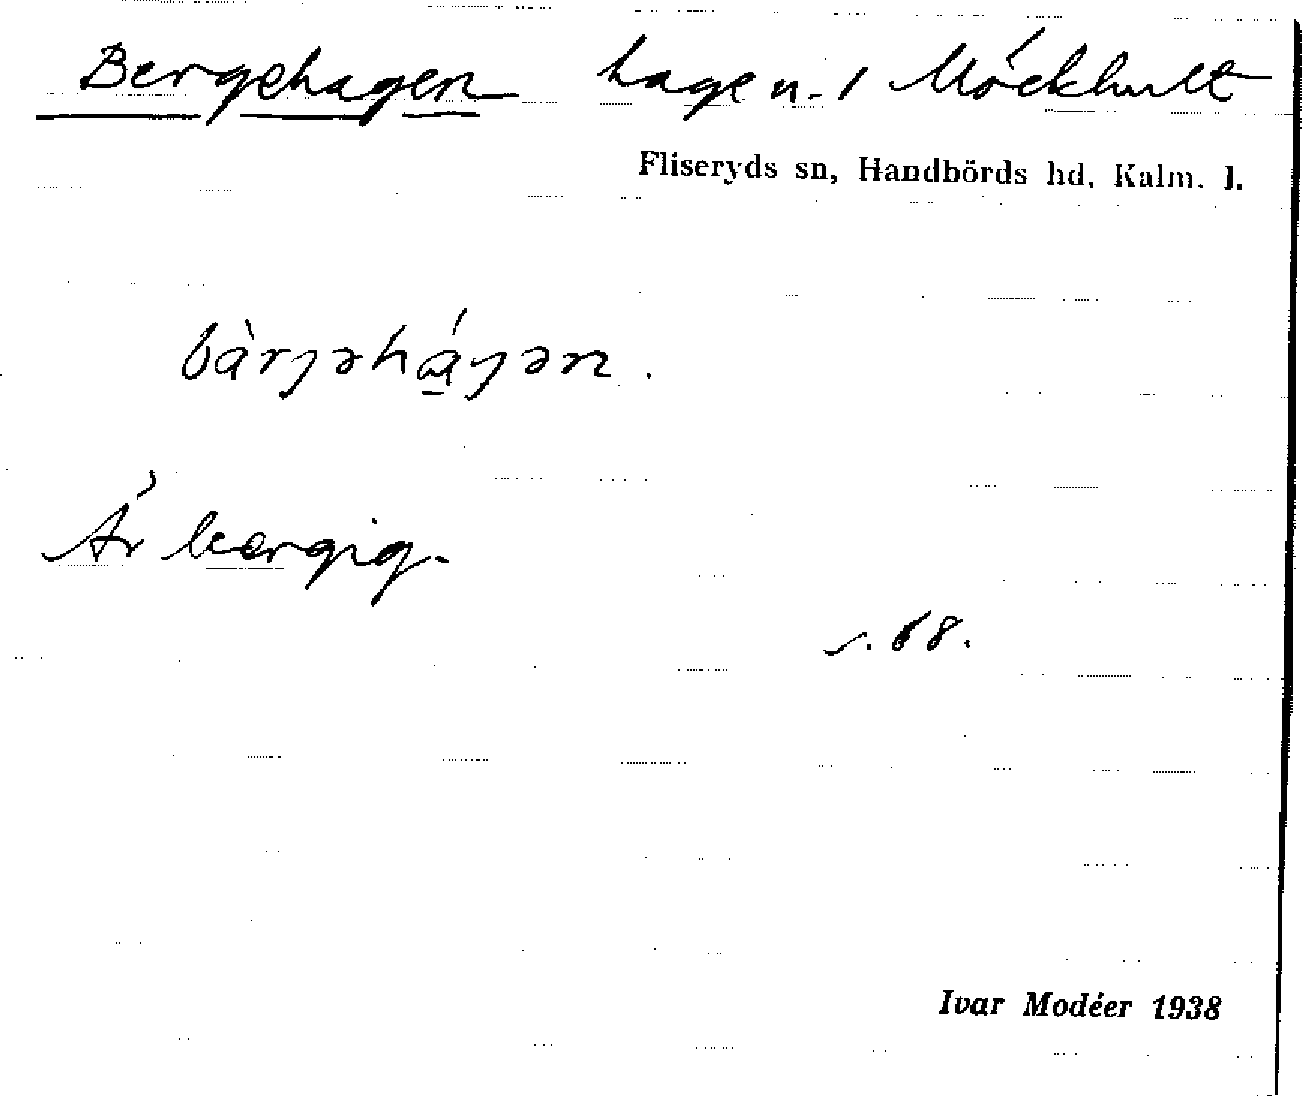 Bergehagen hage u. 1 Möckhult
Fliseryds sn, Handbörds hd, Kalm. l.
bàrjəháɡən.
Är bergig.
s. 68.
Ivar Modéer 1938